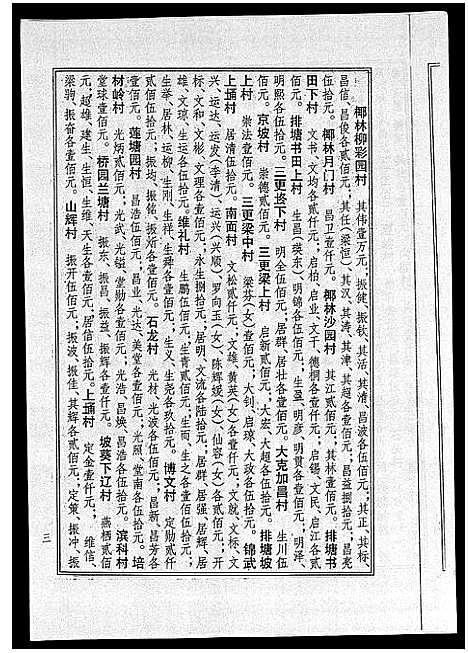 椰林柳彩园村　其伟壹万元，振健、振钦、其活、其清、昌波各伍佰元，其正、其标、
昌信、昌俊各贰佰元，其任（梁恒）、其汉、其涛、其津、其超各壹佰元，昌益捌拾元，昌亮
伍拾元。椰林月门村　昌卫壹仟元。椰林沙园村　其江贰佰元，其林壹佰元。排塘书
田下村　文书、文均各贰仟元，启柏、启业、文干、德桐各壹仟元，启锡、文民、启江各贰
佰元。排塘书田上村　生昌（英东）、明锦各伍佰元，生盈、明彦、明贯各壹佰元，明泽、
明熙各伍拾元。三更㙍下村　明全伍佰元，居群、居壮各壹佰元。大克加昌村　生川伍
佰元。京坡村　崇德贰佰元。三更梁上村　启新贰佰元，大宏、大超各壹佰元。排塘坡
上村　崇法壹佰元。三更梁中村　梁芬（女）壹佰元，大钊、启琼、大政各伍拾元。锦武
上㙍村　居清伍拾元。南面村　文松贰仟元，文雄、黄英（女）各壹仟元，文就、文标、文
兴、运达、运发（李清）、运兴（兴顺）、罗向玉（女）、陈辉媛（女）、仙容（女）各贰佰元，开
标、文和、文彬、文理各壹佰元，永生捌拾元，居明、文流各陆拾元，居群、居强、居辉、居
雄、文琼、生运各伍拾元。维礼村　生鹏伍佰元，生青贰佰元，生而、生之各壹佰元，开
生举、居林、运柳、生刚、生祥、生舜各壹佰元，生义、生尧各玖拾元。博文村　定勋贰仟
贰佰伍拾元，振均、振铭、振炘各壹佰元。石龙村　光材、光波各伍佰元，昌新、昌芳各
壹佰元。莲塘园村　昌浩伍佰元，昌业、光达、美堂各壹佰元，光照、堂南各伍拾元。培
材岭村　光炳贰佰元，光武、光镒、堂勋各壹佰元，光浩、昌焕、昌浩各伍拾元。滨科村
堂球壹佰元。桥园兰塘村　振东、振昌、振益、振辉各壹仟元。坡葵下辽村　燕栖贰佰
元，赵雄、建生、生恒、生维、天生各壹佰元，居信伍拾元。上㙍村　定金壹仟元，维信、
梁驹、振奋各壹佰元。山辉村　振开伍佰元，振波、振佳、其辉各贰佰元，定策、振冲、振
三